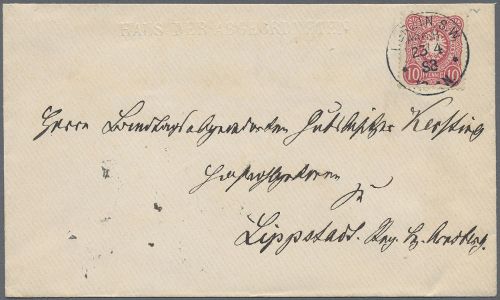 HAUS DER ABGEORDNETEN.
BERLIN S.W.
23 4
83
10 PFENNIG 10
Herrn Landtagsabgeordneten Gutsbesitzer Kersting
Hochwohlgeboren
zu
Lippstadt. Reg. Bz. Arnsberg.